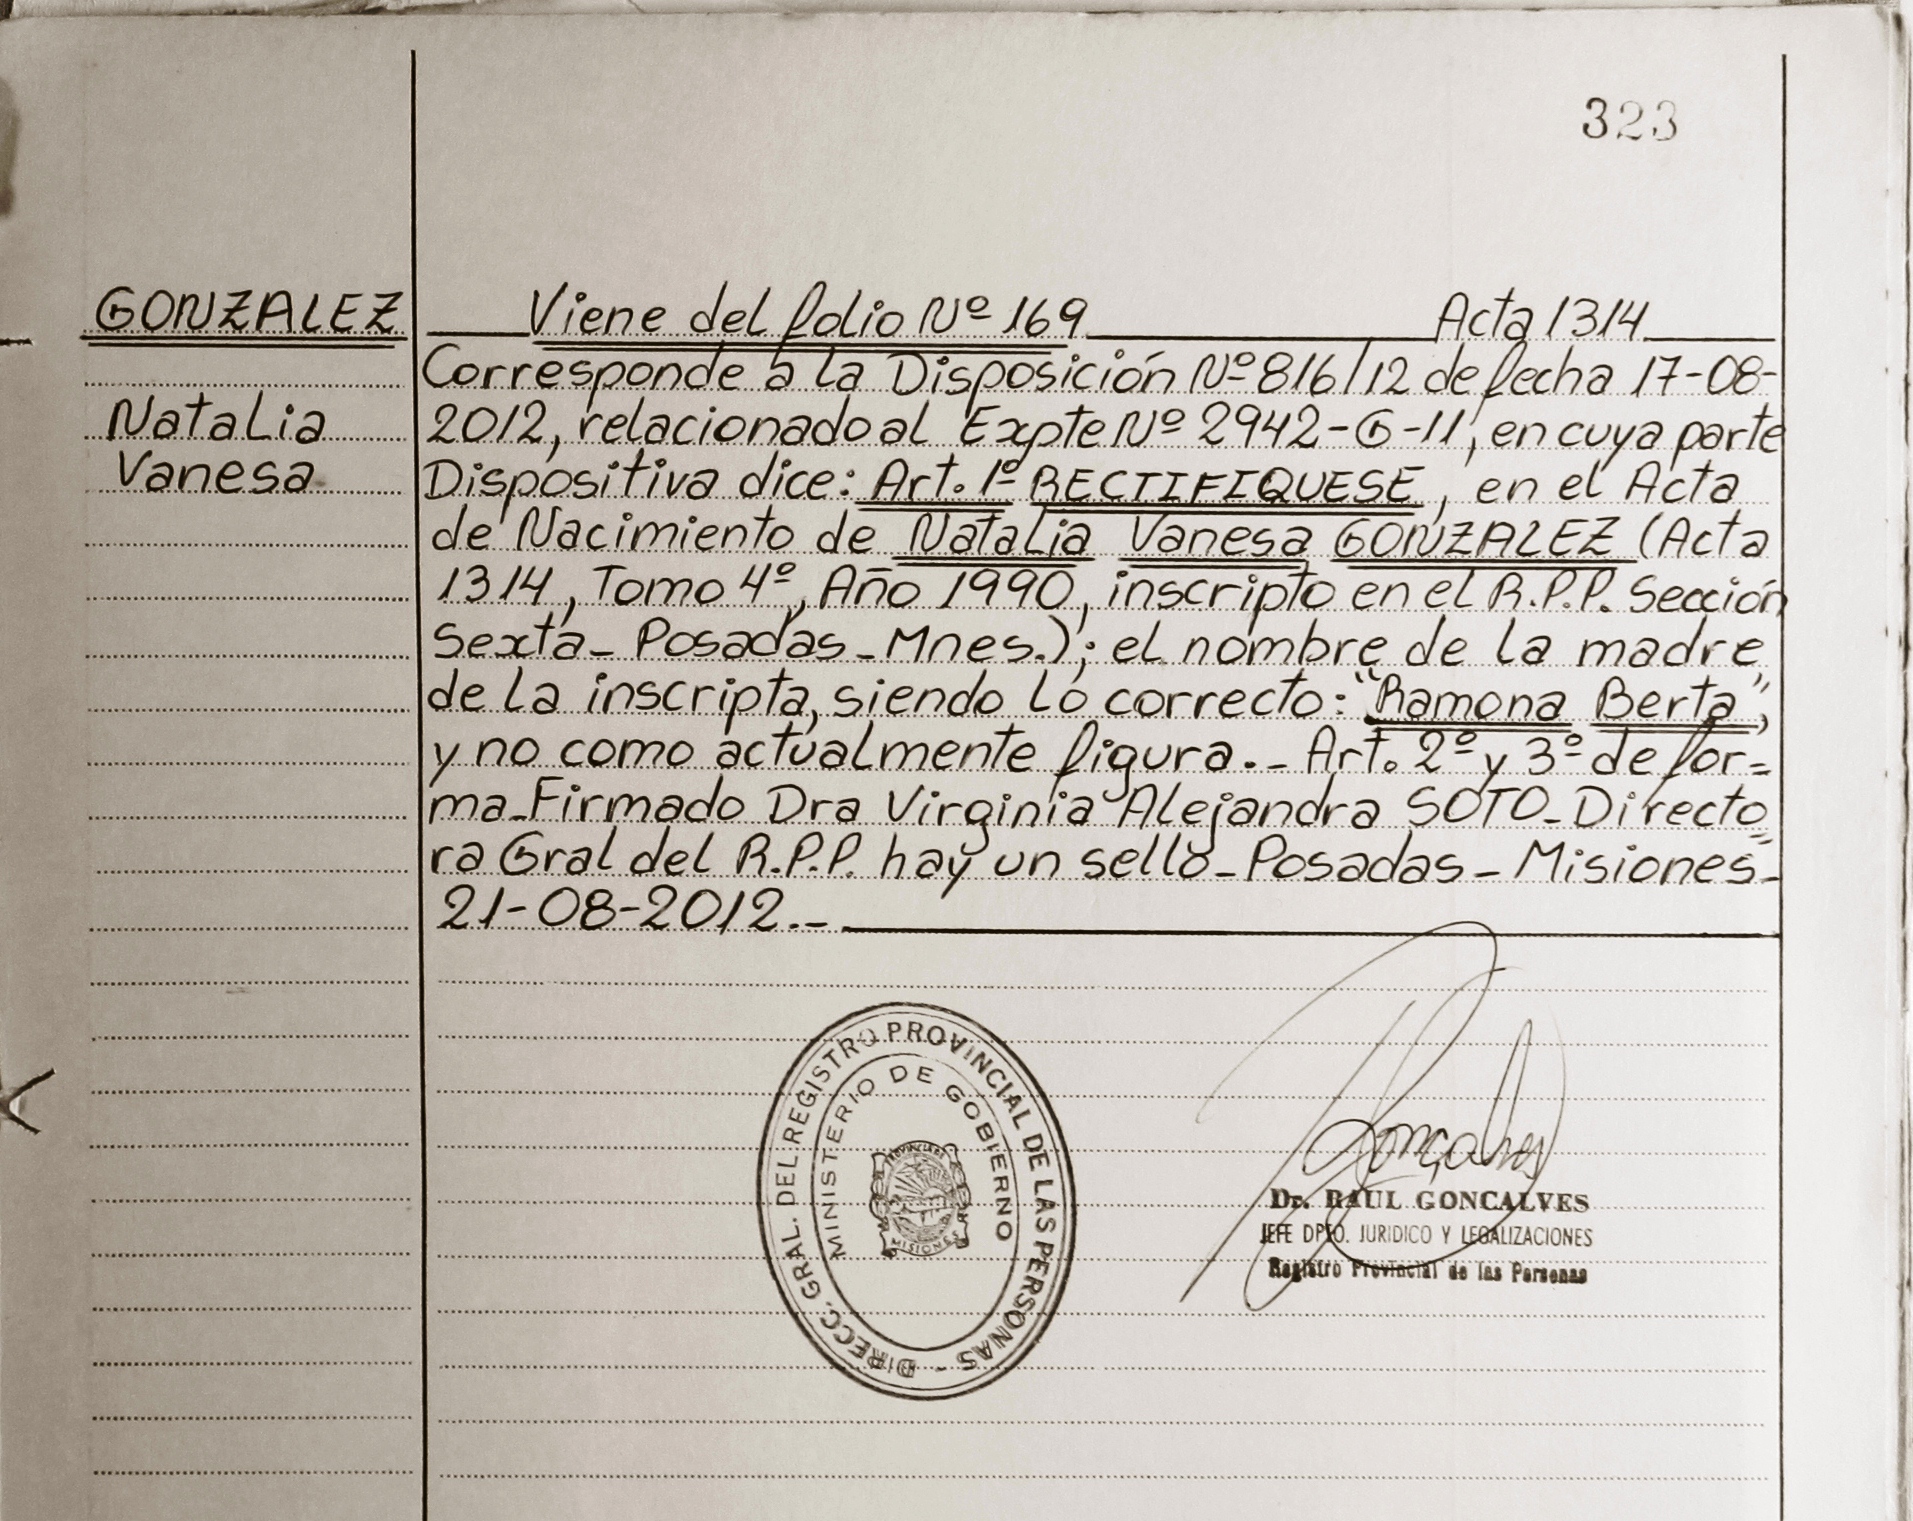 323
GONZALEZ
Natalia
Vanesa
Viene del folio Nº 169 Acta 1314
Corresponde a la Disposición Nº 816/12 de fecha 17-08-
2012, relacionado al Expte Nº 2942-G-11, en cuya parte
Dispositiva dice: Art. 1º RECTIFIQUESE, en el Acta
de Nacimiento de Natalia Vanesa GONZALEZ (Acta
1314, Tomo 4º, Año 1990, inscripto en el R.P.P. Sección
Sexta_ Posadas_Mnes.); el nombre de la madre
de la inscripta, siendo lo correcto: "Ramona Berta",
y no como actualmente figura._ Art. 2º y 3º de for=
ma_Firmado Dra Virginia Alejandra SOTO_Directo=
ra Gral del R.P.P. hay un sello_Posadas_Misiones_
21-08-2012._
DIRECC. GRAL. DEL REGISTRO PROVINCIAL DE LAS PERSONAS -
MINISTERIO DE GOBIERNO
PROVINCIA DE
MISIONES
Gonçalves
Dr. RAUL GONCALVES
JEFE DPTO. JURIDICO Y LEGALIZACIONES
Registro Provincial de las Personas